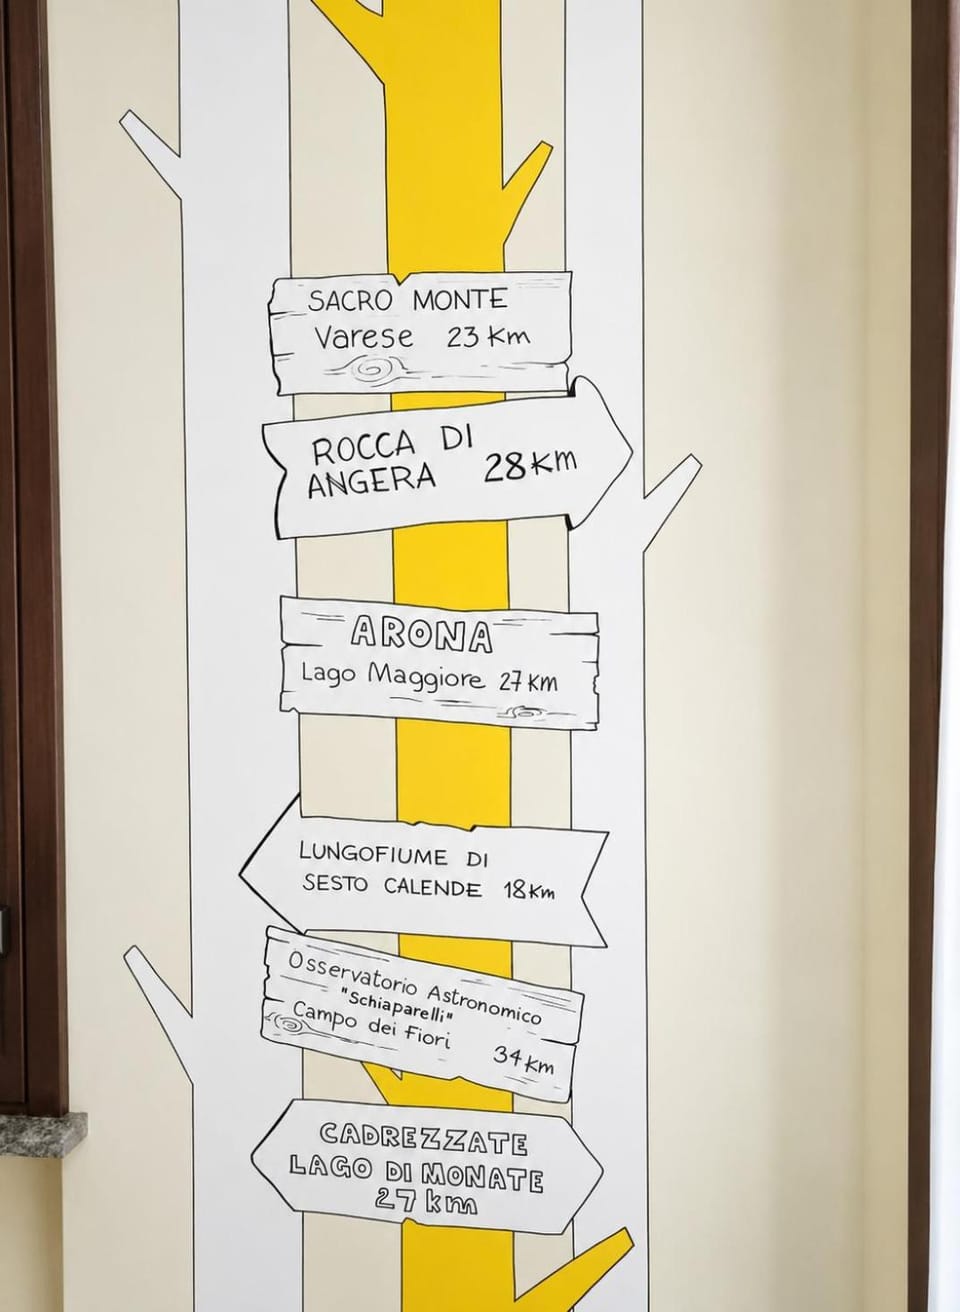 SACRO MONTE
Varese 23 Km
ROCCA DI
ANGERA 28 Km
ARONA
Lago Maggiore 27 Km
LUNGOFIUME DI
SESTO CALENDE 18 Km
Osservatorio Astronomico
"Schiaparelli"
Campo dei Fiori
34 Km
CADREZZATE
LAGO DI MONATE
27 km